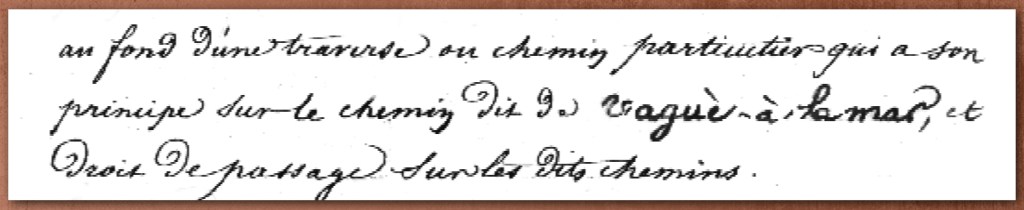 au fond d'úne traverse ou chemin particulier qui a son
principe sur le chemin dit de vaguè-à-la mar, et
Droit De passage Sur les dits chemins.